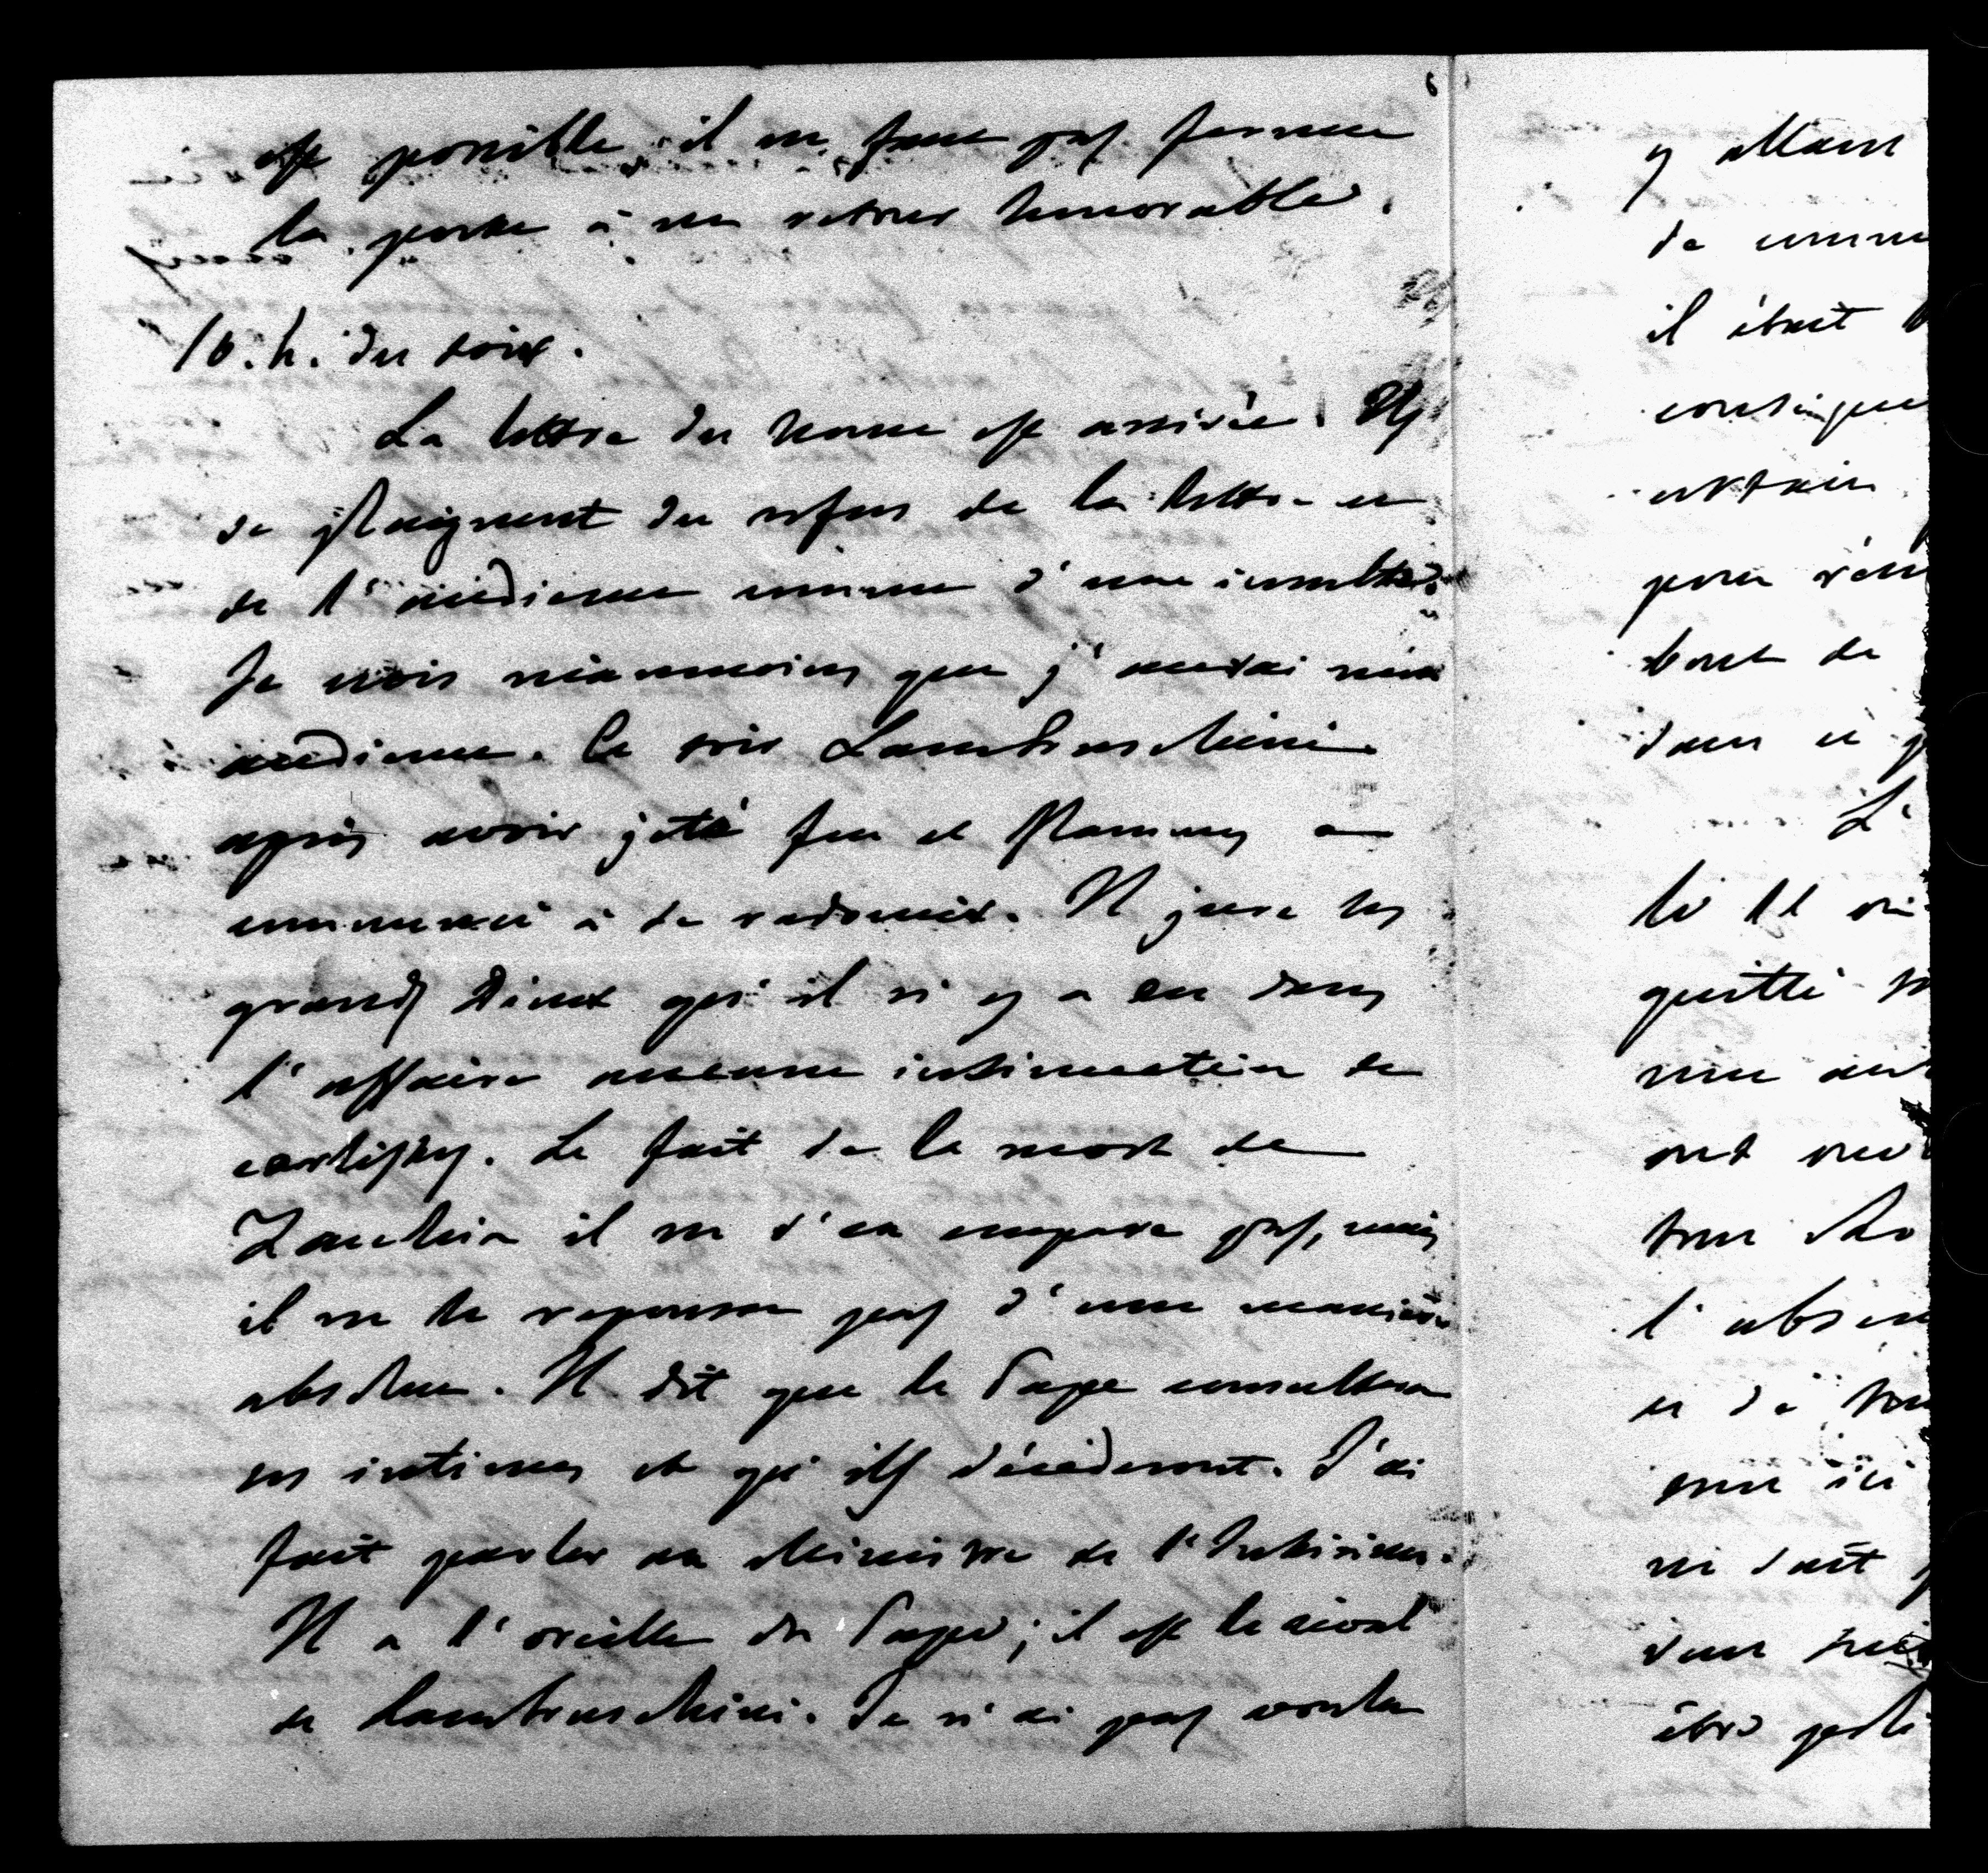 est possible il ne faut pas fermer
la porte à un retour honorable.
10. h. du soir.
La lettre du nonce est arrivée. Ils
se plaignent du refus de la lettre et
de l'audience comme d'une insulte.
Je crois néanmoins que j'aurai mon
audience. Ce soir Lambruschini
après avoir jeté feu et flammes a
commencé à se radoucir. Il jure ses
grands Dieux qu'il n'y a eu dans
l'affaire aucune insinuation de
carlistes. Le fait de la mort de
il ne s'en empare pas, mais
il ne le repousse pas d'une manière
absolue. Il dit que le Pape consultera
ses intimes et qu'ils décideront. J'ai
fait parler au Ministre de l'Intérieur.
Il a l'oreille du Pape; il est le rival
de Lambruschini. Je n'ai pas voulu
y allant
de
il était
certain
pour
bout de
dans ce
L'
quitté
ont
l'
et de
ici
ne sait
être